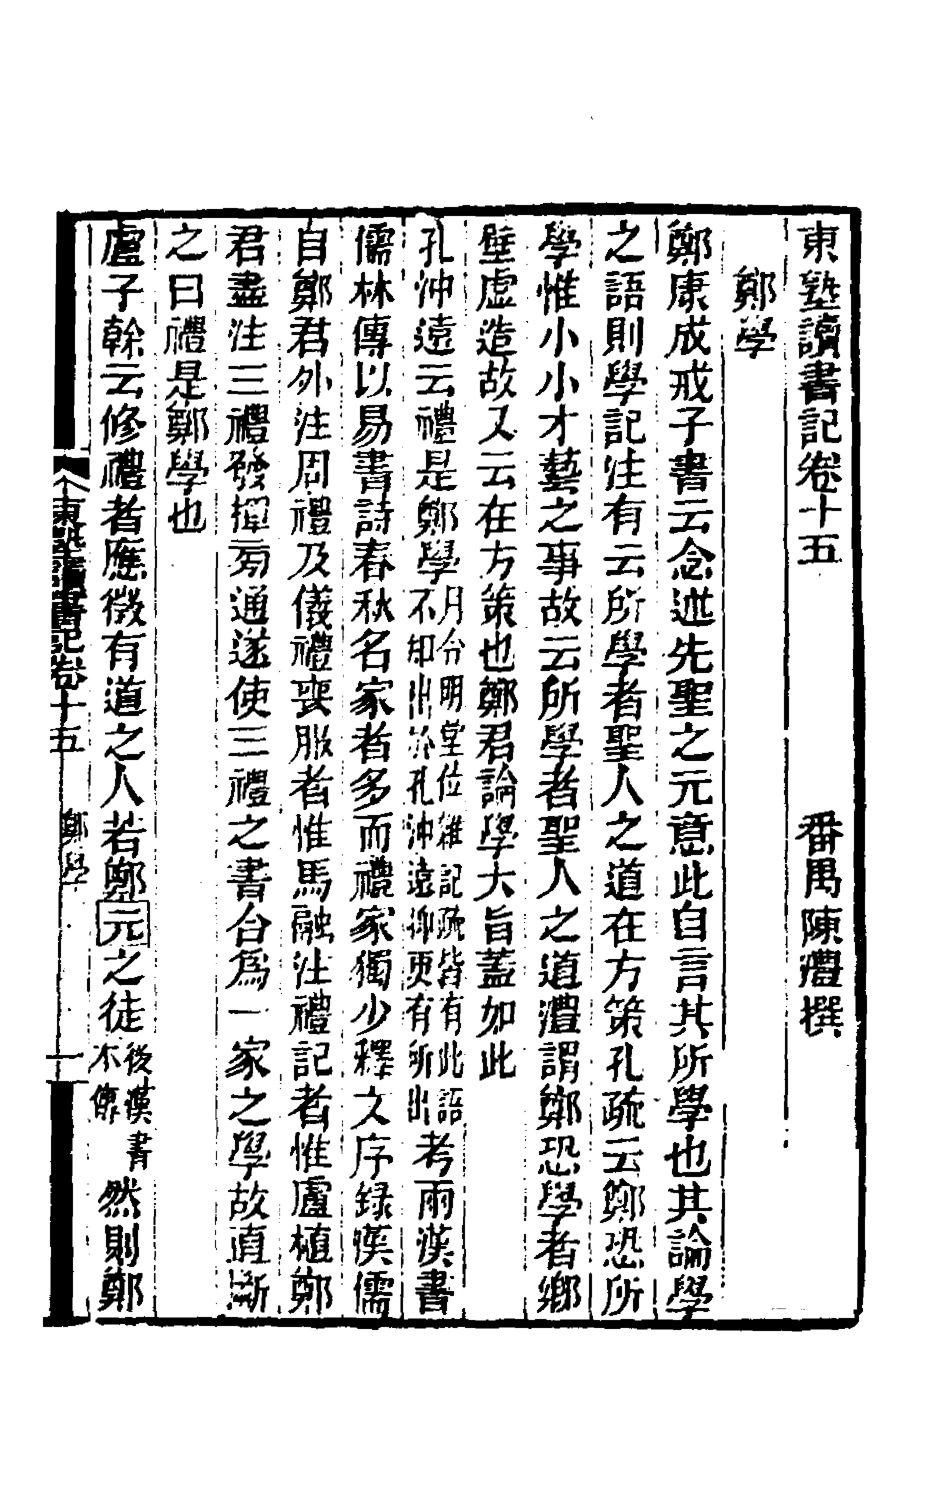 東塾讀書記卷十五
番禺陳澧撰
鄭學
鄭康成戒子書云念述先聖之元意此自言其所學也其論學
之語則學記注有云所學者聖人之道在方策孔疏云鄭恐所
學惟小小才藝之事故云所學者聖人之道澧謂鄭恐學者鄉
壁虛造故又云在方策也鄭君論學大旨蓋如此
孔沖遠云禮是鄭學月令明堂位雜記疏皆有此語不知出於孔沖遠抑更有所出考兩漢書
儒林傳以易書詩春秋名家者多而禮家獨少釋文序錄漢儒
自鄭君外注周禮及儀禮喪服者惟馬融注禮記者惟盧植鄭
君盡注三禮發揮旁通遂使三禮之書合爲一家之學故直斷
之曰禮是鄭學也
盧子榦云修禮者應徵有道之人若鄭元之徒後漢書本傳然則鄭
東塾讀書記卷十五 鄭學 一